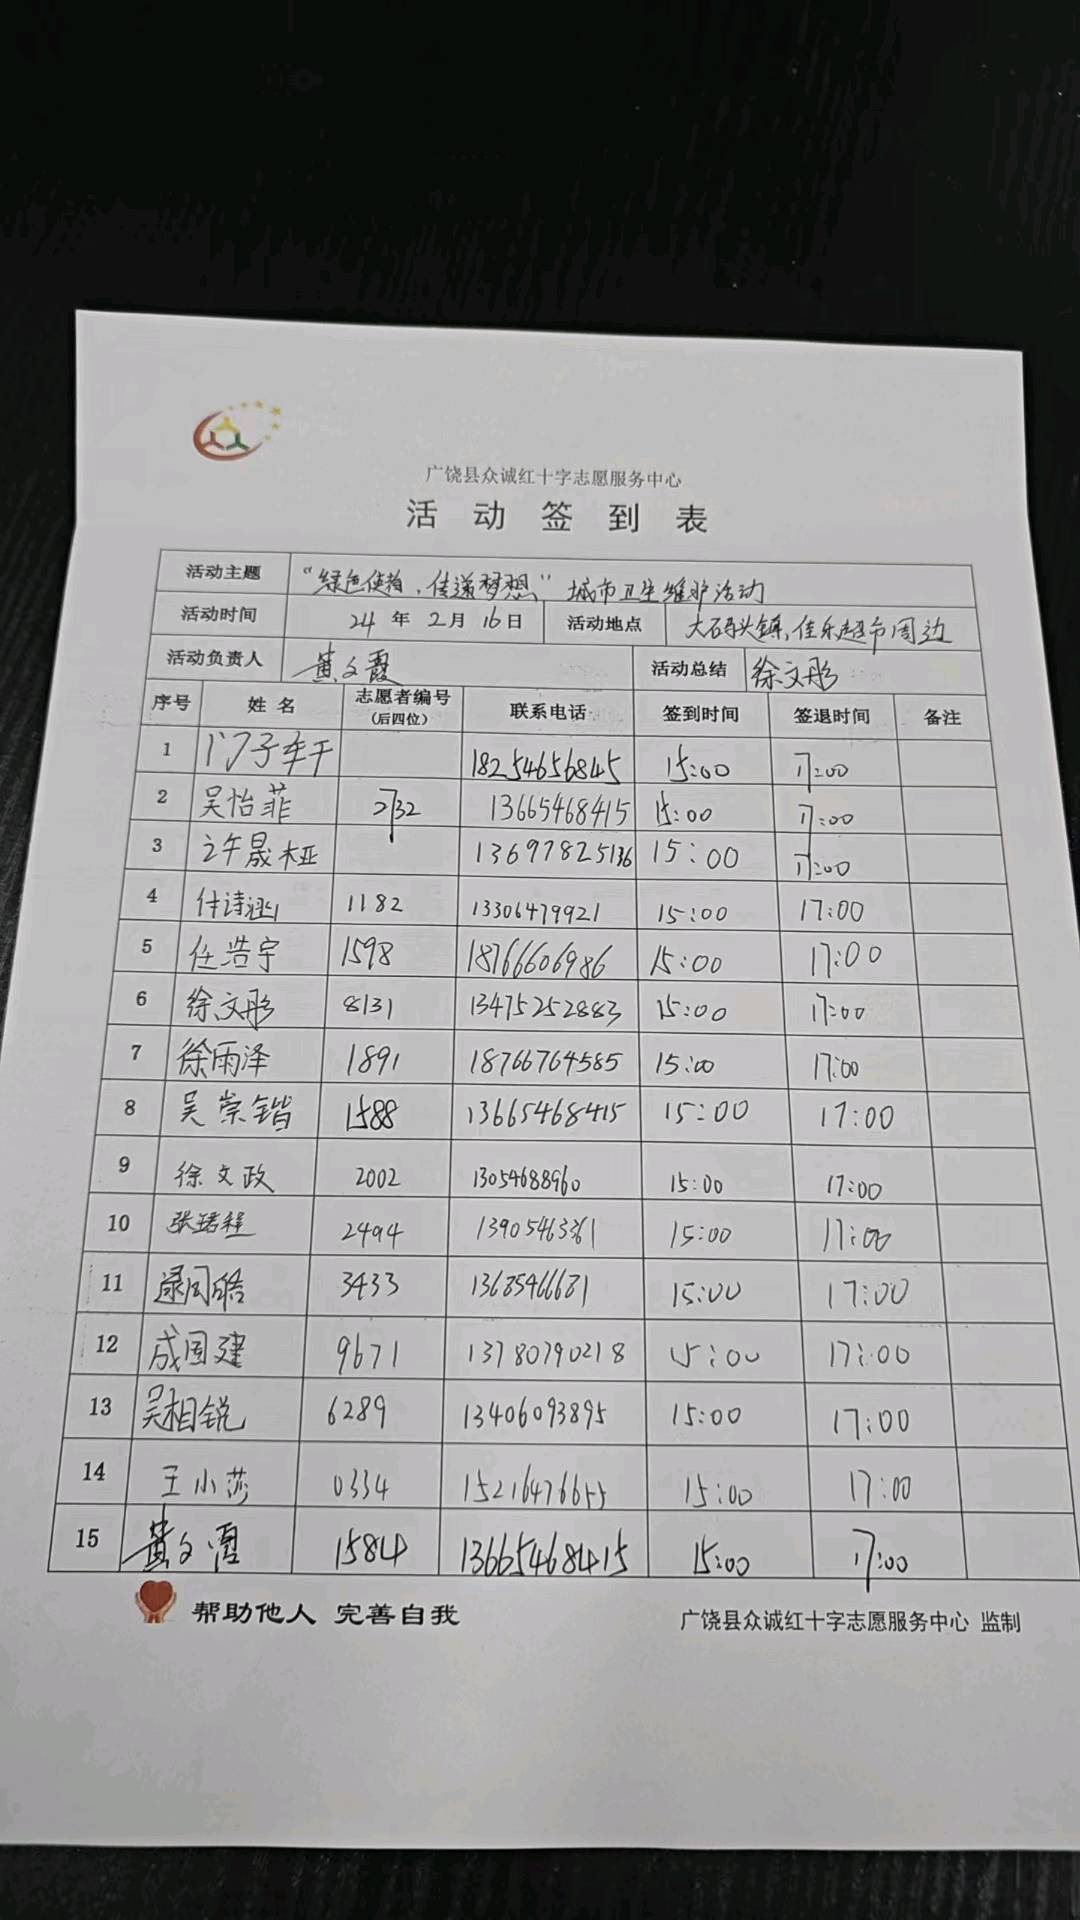 广饶县众诚红十字志愿服务中心
活动签到表
活动主题 “绿色使者，传递梦想”城市卫生维护活动
活动时间 24年2月16日 活动地点 大码头镇，佳乐超市周边
活动负责人 黄文霞 活动总结 徐文彤
序号 姓名 志愿者编号（后四位） 联系电话 签到时间 签退时间 备注
1 18254656845 15:00 17:00
2 吴怡菲 2732 13665468415 15:00 17:00
3 13697825136 15:00 17:00
4 付诗涵 1182 13306479921 15:00 17:00
5 任浩宇 1598 18766606986 15:00 17:00
6 徐文彤 8131 13475252883 15:00 17:00
7 徐雨泽 1891 18766764585 15:00 17:00
8 吴崇锴 1588 13665468415 15:00 17:00
9 徐文政 2002 13054688960 15:00 17:00
10 2494 15:00 17:00
11 3433 15:00 17:00
12 成国建 9671 13780790218 15:00 17:00
13 吴相锐 6289 13406093895 15:00 17:00
14 王小莎 0334 15216476655 15:00 17:00
15 黄文霞 1584 13665468415 15:00 17:00
帮助他人 完善自我 广饶县众诚红十字志愿服务中心 监制